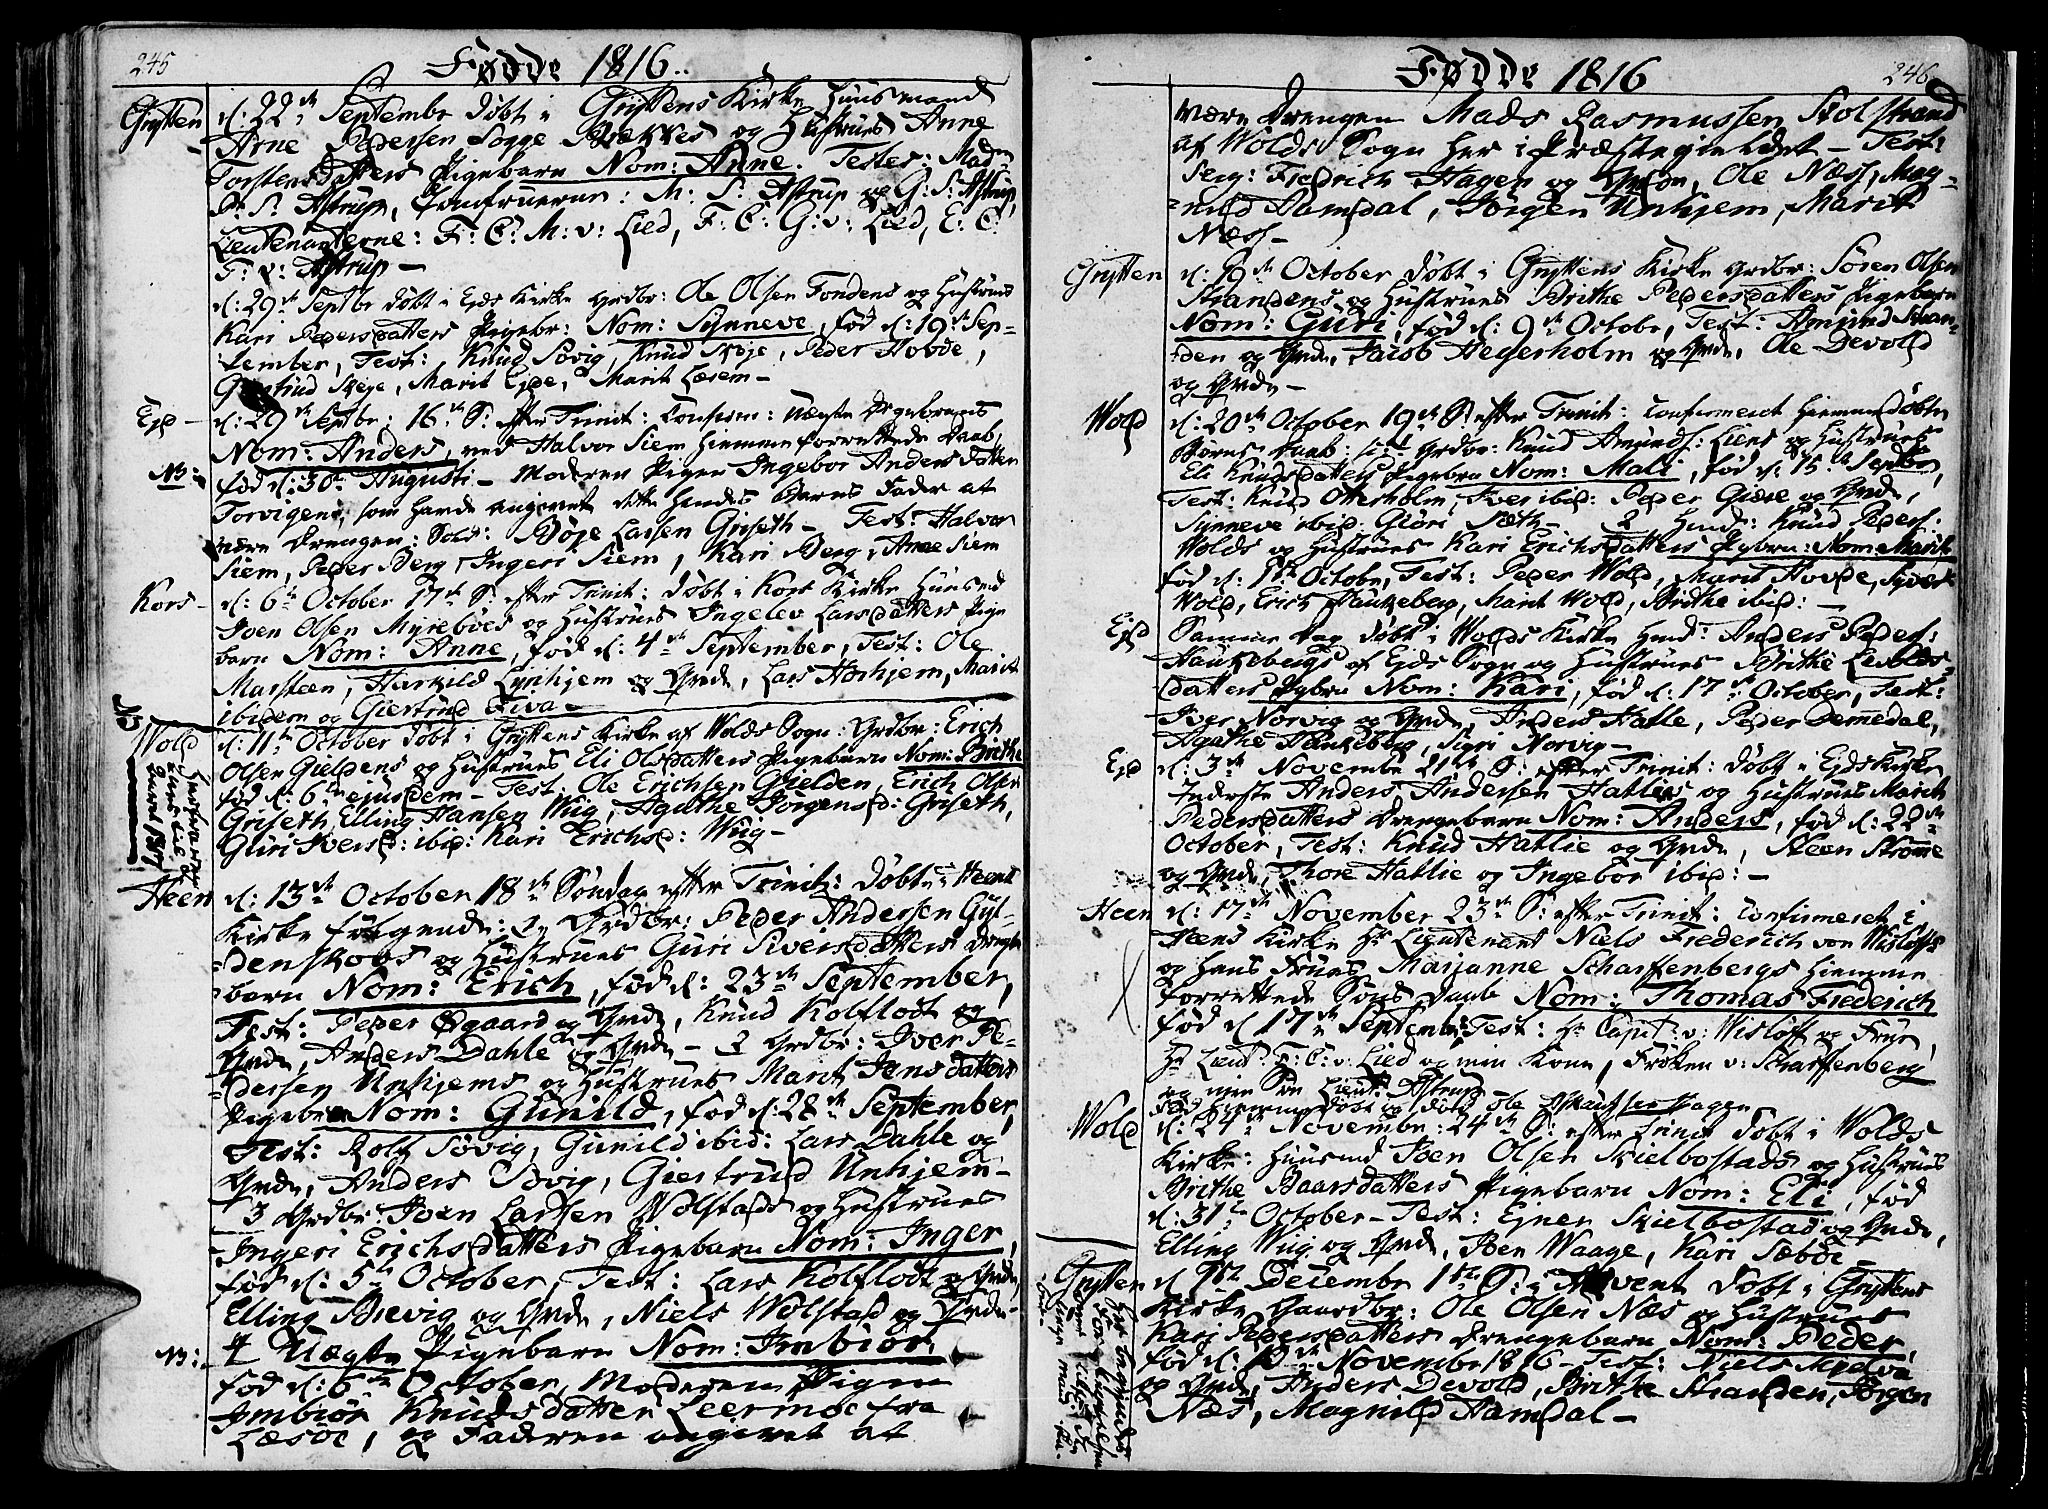 245
Fødde 1816.
Grytten
d: 22de Septembr døbt i Gryttens Kirke Huusmand
Arne Pedersen Sogge Brækkes og Hustrues Anne
Torstensdatters Pigebarn Nom: Anne. Testes: Madm
P: S: Astrup, Jomfruerne: M: S: Astrup og G: S: Astrup,
Lieutenanterne: F: C: M: v: Lied, F: C: G: v: Lied, E: C:
F: v: Astrup —
d: 29de Septbr døbt i Ejds Kirke Grdbr: Ole Olsen Fondens og Hustrues
Kari Pedersdatters Pigebr: Nom: Synneve, fød d: 19de Sep-
tember, Test: Knud Søvig, Knud Skeje, Peder Hovde,
Giertrud Skeje, Marit Ejde, Marit Læsem —
Ejd —
d: 29de Septbr: 16de S: efter Trinit: Confirm: Uægte Drgebrns
Nom: Anders, ved Halvor Siem hiemme forrettede Daab,
NB:
fød d: 30te Augusti — Moderen Piger Ingebor Anders datter
Torvigens, som havde angivet dette hendes Barns Fader at
være Drengen: Sold: Bøje Larsen Griseth — Test: Halvor
Siem, Peder Berg, Ingeri Siem, Kari Berg, Anne Siem
Kors —
d: 6te October 17de S: efter Trinit: døbt i Kors Kirke Huusmd
Iven Olsen Myrebøes og Hustrues Ingelev Larsdatters Pige
barn Nom: Anne, fød d: 4de September, Test: Ole
Marsteen, Harkild Lynhjem og Qvde, Lars Horhjem, Marit
ibidem og Giertrud Fiva —
NB
Wold
d: 11te October døbt i Gryttens Kirke af Wolds Sogn: Grdbr: Erich
Olsen Gieldens og Hustrues Eli Olsdatters Pigebarn Nom: Brithe
fød d: 6te ejusdem — Test: Ole Erichsen Gielden, Erich Olsen
Griseth, Elling Hansen Wiig, Agathe Jørgensd: Griseth,
Guri Iversd: ibid: Kari Erichsd: Wiig —
Heen
d: 13de October 18de Søndag efter Trinit: døbt i Heens
Kirke følgende: 1, Grdbr: Peder Andersen Gyl-
denskogs og Hustrues Guri Siversdatters Drenge
barn Nom: Erich, fød d: 23de September,
Test: Peder Øgaard og Qvde, Knud Kolflodt og
Qvde, Anders Dahle og Qvde — 2 Grdbr: Iver Pe-
dersen Unhjems og Hustrues Marit Jens datters
Pigebrn Nom: Gunild, fød d: 28de September,
Test: Rolf Søvig, Gunild ibid: Lars Dahle og
Qvde, Anders Søvig, Giertrud Unhjem —
3 Grdbr: Iven Larsen Wolstads og Hustrues
Ingeri Erichsdatters Pigebarn Nom: Inger,
fød d: 5te October, Test: Lars Kolflodt og Qvde,
Elling Brevig og Qvde, Niels Wolstad og Qvde —
NB:
4 Uægte Pigebarn Nom: Imbiør,
fød d: 6te October, Moderen Pigen
Imbiør Knudsdatter Leermoe fra
Læsøe, og Faderen angivet at
246
Fødde 1816
være Drengen Mads Rasmussen Stolstrand
af Wolds Sogn her i Præstegieldet — Test:
Serg: Fredrich Hagen og Qvde, Ole Næss, Mag-
nild Hamsdal, Jørgen Unhjem, Marit
Næss —
Grytten
d: 19de October døbt i Gryttens Kirke Grdbr: Søren Olsen
Strandens og Hustrues Brithe Pedersdatters Pigebarn
Nom: Guri, fød d: 9de Octobr, Test: Amund Stran-
den og Qvde, Jacob Hegerholm og Qvde, Ole Devold
og Qvde —
Wold
d: 20de October 19de S: efter Trinit: Confirmeret hiemmedøbte
Børns Daab: 1, Grdbr: Knud Amunds: Liens og Hustrues
Eli Knudsdatters Pigebrn Nom: Mali, fød d: 15de Septbr,
Test: Knud Otterholm, Iver ibid: Peder Giære og Qvde,
Synneve ibid: Giøri Sæth — 2 Husd: Knud Peders:
Wolds og Hustrues Kari Erichsdatters Pigebrn: Nom: Marit
fød d: 1ste Octobr, Test: Peder Wold, Marit Hovde, Siver
Wold, Erich Haukeberg, Marit Wold, Brithe ibid: —
Ejd
Samme Dag døbt i Wolds Kirke Husd: Anders Peders:
Haukebergs af Ejds Sogn og Hustrues Brithe Levolds-
datters Pigebrn Nom: Kari, fød d: 17de October, Test:
Iver Norvig og Qvde, Anders Hatle, Peder Demmedal,
Agathe Haukeberg, Sigri Norvig —
Ejd
d: 3de Novembr 21de S: efter Trinit: døbt i Ejds Kirke
Inderste Anders Andersen Hatlies og Hustrues Marit
Pedersdatters Drengebarn Nom: Anders, fød d: 22de
October, Test: Knud Hatlie og Qvde, Steen Strøme
og Qvde, Thore Hatlie og Ingebor ibid: —
Heen
d: 17de November 23de S: efter Trinit: Confirmeret i
Heens Kirke Hr Lieutenent Niels Frederich von Wisløffs
og hans Frues Marjanne Scharffenbergs hiemme
forrettede Søns Daab Nom: Thomas Frederich
fød d 17de Septembr Test: Hr Capit: v: Wisløff og Frue,
Hr Lieut: F: C: v: Lied og min Kone, Frøken v: Scharffenberg
og min Søn Lieut: Astrup —
Wold
d: 24de Novembr: 24de S: efter Trinit døbt i Wolds
Kirke: Huusmd Iven Olsen Skielbostads og Hustrues
Brithe Baarsdatters Pigebarn Nom: Eli, fød
d: 31te October — Test: Ejner Skielbostad og Qvde,
Elling Wiig og Qvde, Iven Waage, Kari Sæbøe
Grytten
d 1ste Decembr 1ste S: i Advent døbt i Gryttens
Kirke Gaardbr: Ole Olsen Næs og Hustrues
Kari Pedersdatters Drengebarn Nom: Peder,
fød d: 10de Novembr 1816 — Test: Niels Mjelva
og Qvde, Anders Devold, Brithe Stranden, Jørgen
Næs, Magnild Hamsdal —